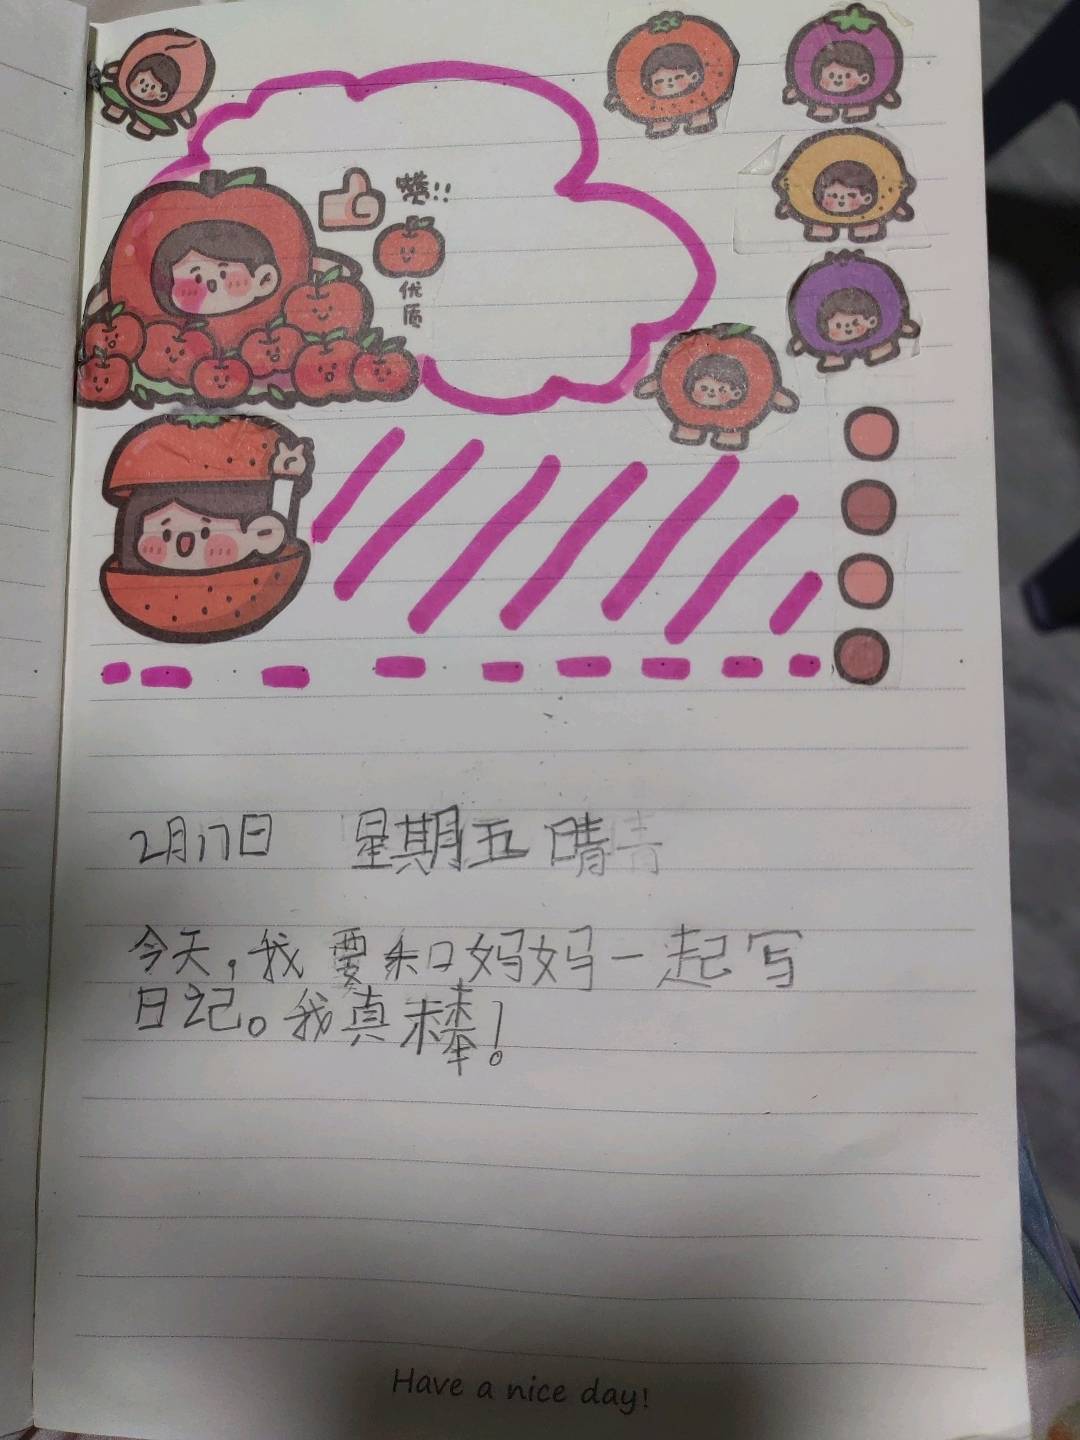 赞!!
优
质
2月17日 星期五 晴
今天,我要和妈妈一起写
日记。我真棒!
Have a nice day!